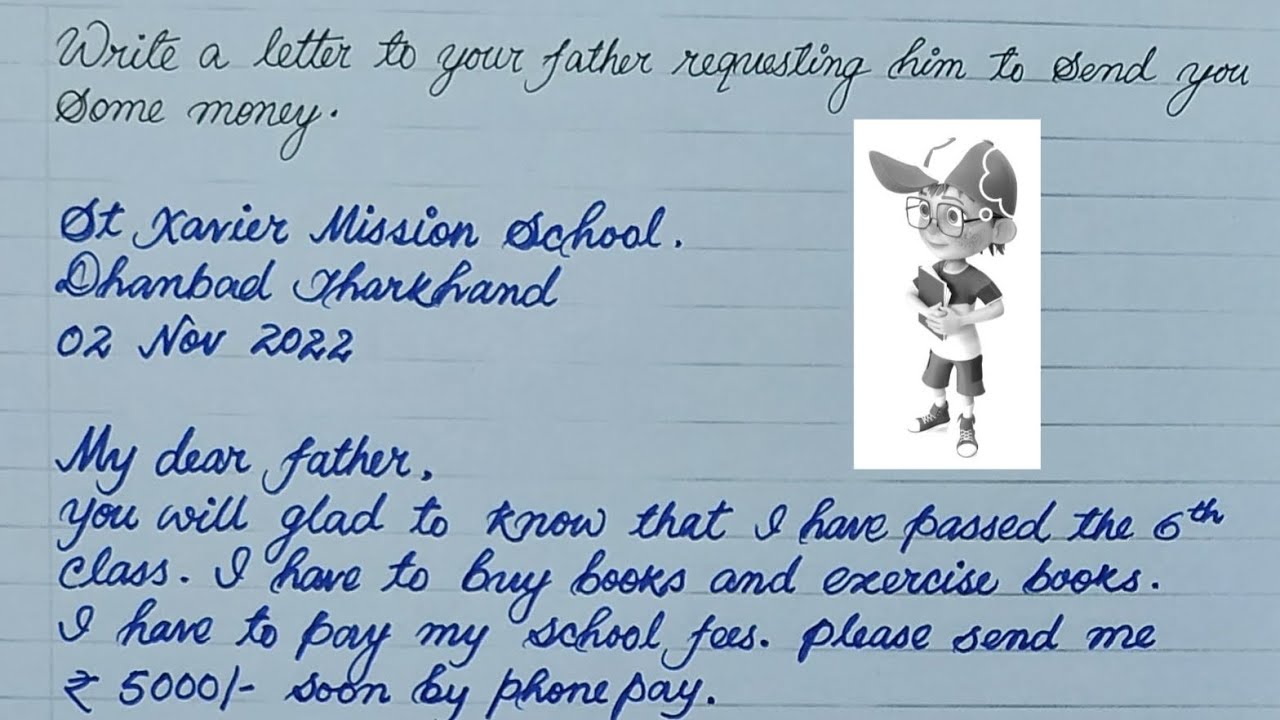 Write a letter to your father requesting him to send you
some money.
St Xavier Mission School.
Dhanbad Jharkhand
02 Nov 2022
My dear father,
you will glad to know that I have passed the 6th
class. I have to buy books and exercise books.
I have to pay my school fees. please send me
₹ 5000/- soon by phone pay.